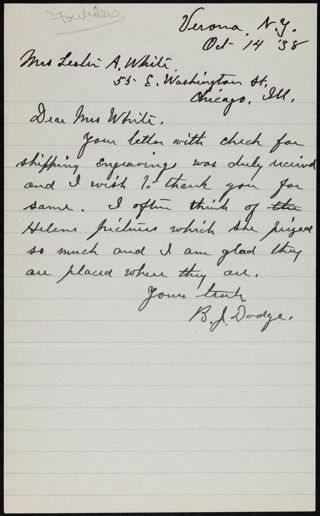 Verona, N.Y.
Oct 14 '38
Mrs Leslie A. White.
55 E. Washington St.
Chicago, Ill.
Dear Mrs White.
Your letter with check for
shipping engravings was duly received
and I wish to thank you for
same. I often think of the
Helens pictures which she prized
so much and I am glad they
are placed where they are.
Yours truly
B. J. Dodge.